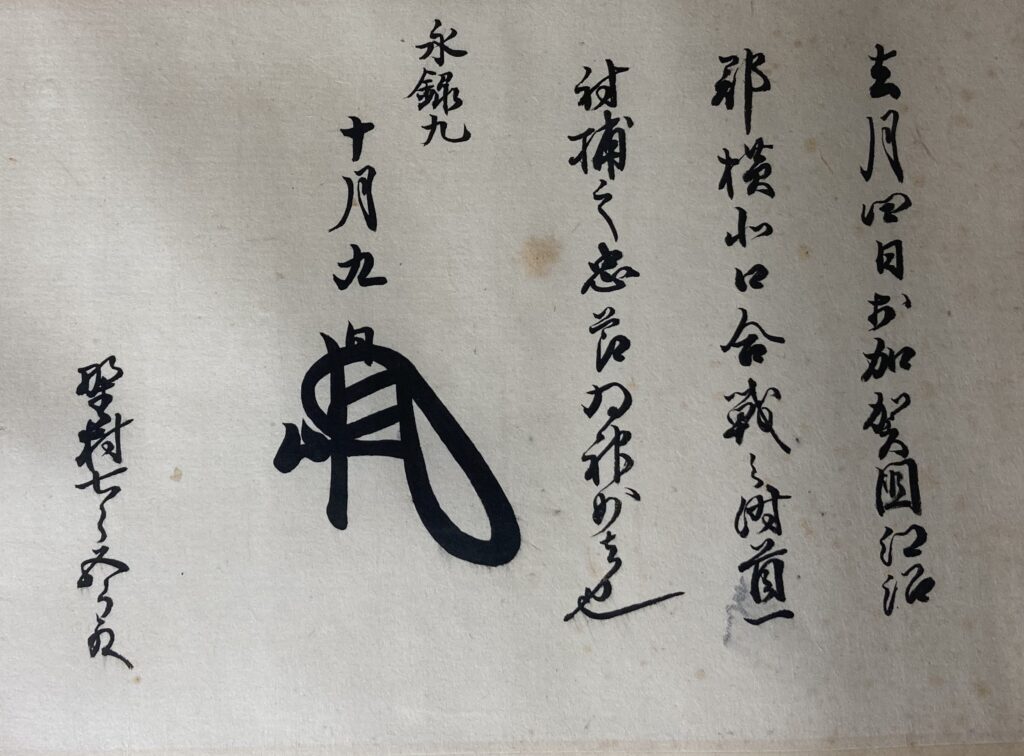 去月四日於加賀國江沼
郡横北口合戦之時首一
討捕之忠節為神妙者也
永録九
十月九日
野村七郎五郎殿